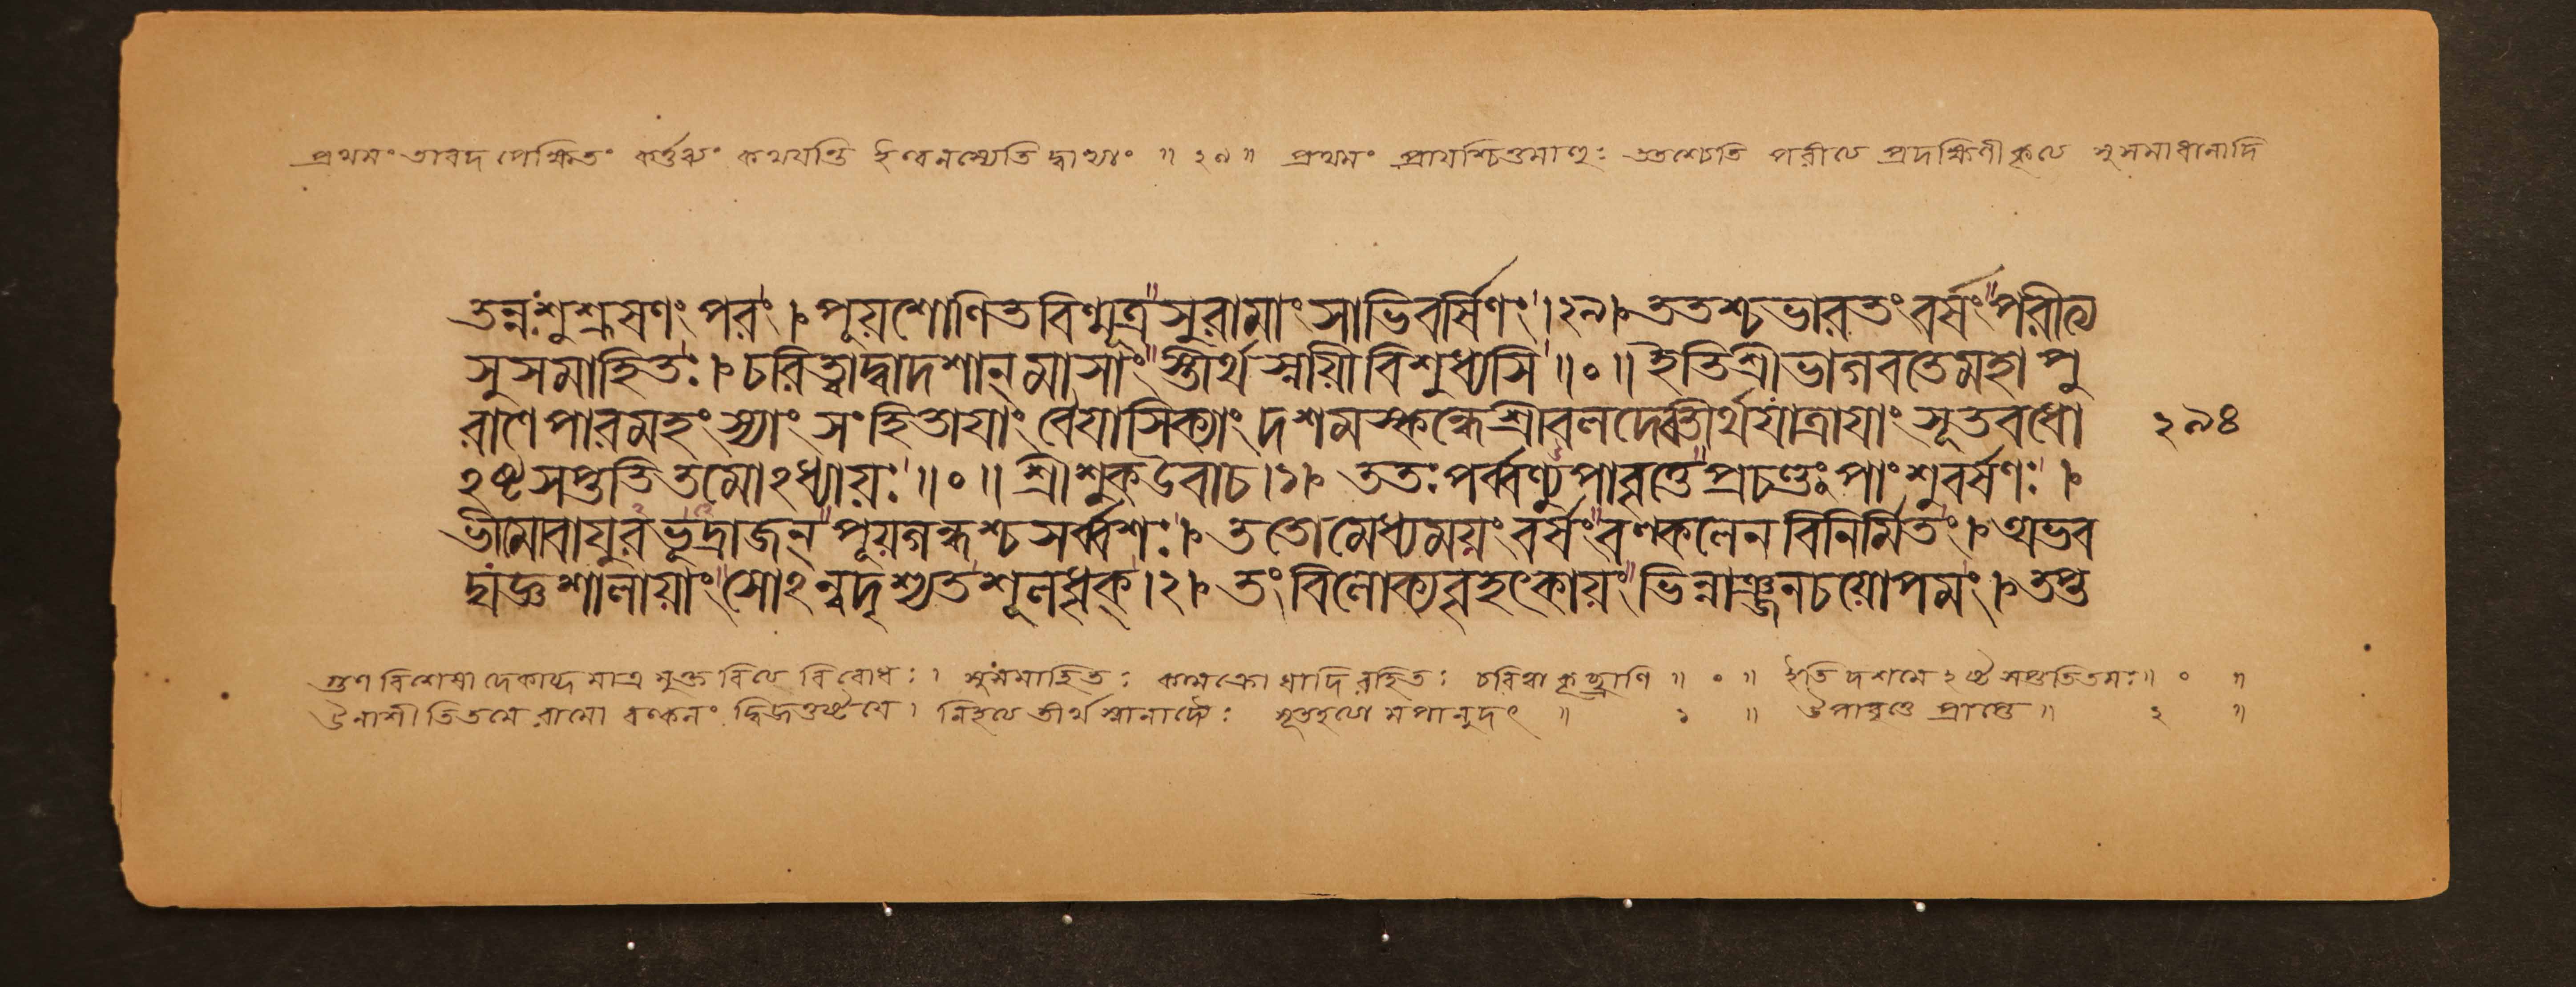 প্রথমং তাবদপেক্ষিতং কর্ত্তুঞ্চ কথযন্তি ইল্বলস্যেতি দ্বাভ্যাং ॥ ২৯ ॥ প্রথমং প্রাযশ্চিত্তমাহুঃ ততশ্চেতি পরীত্য প্রদক্ষিণীকৃত্য সুসমাধানাদি
তন্নঃশুশ্রূষণং পরং । পূয়শোণিতবিণ্মূত্রসুরামাংসাভিবর্ষিণং ।২৯। ততশ্চভারতংবর্ষংপরীত্য
সুসমাহিতঃ । চরিত্বাদ্বাদশান্ মাসাংস্তীর্থস্নায়ীবিশুধ্যসি ॥০॥ ইতিশ্রীভাগবতেমহাপু
রাণেপারমহংস্যাং সংহিতাযাং বৈযাসিক্যাং দশমস্কন্ধেশ্রীবলদেবতীর্থযাত্রাযাং সূতবধো
২৯৪
ঽষ্টসপ্ততিতমোঽধ্যায়ঃ ॥০॥ শ্রীশুকউবাচ ।১। ততঃপর্ব্বণ্যুপাবৃত্তেপ্রচণ্ডঃপাংশুবর্ষণঃ ।
ভীমোবাযুরভূদ্রাজন্ পূয়গন্ধশ্চসর্ব্বশঃ । ততোমেধ্যময়ংবর্ষংবল্কলেনবিনির্মিতং । অভব
দ্যজ্ঞশালায়াংসোঽন্বদৃশ্যতশূলধৃক্ ।২। তংবিলোক্যবৃহৎকায়ংভিন্নাঞ্জনচয়োপমং । তপ্ত
গুণবিশেষাদেকাব্দমাত্রমুক্ত বিত্যবিরোধঃ । সুসমাহিতঃ কামক্রোধাদিরহিতঃ চরিত্বা কৃচ্ছ্রাণি ॥ ০ ॥ ইতি দশমেঽষ্টসপ্ততিতমঃ ॥ ০ ॥
ঊনাশীতিতমে রামো বল্বলং দ্বিজতুষ্টযে । নিহত্য তীর্থস্নানাদ্যৈঃ সূতহত্যামপানুদৎ ॥ ১ ॥ উপাবৃত্তে প্রাপ্তে ॥ ২ ॥